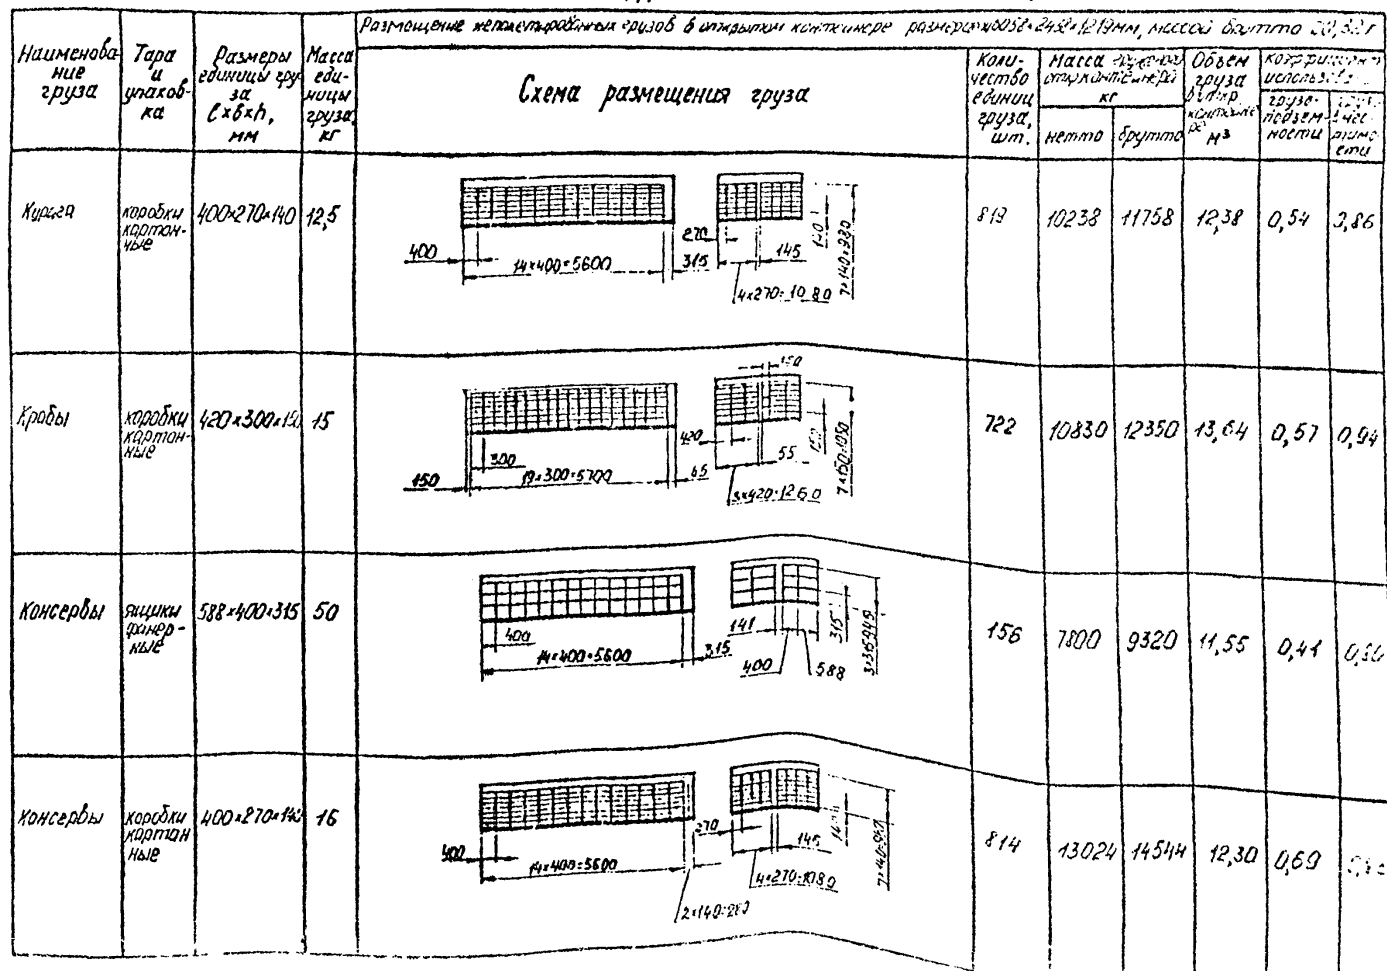 Размещение непакетированных грузов в открытом контейнере размерами 6058×2438×1219мм, массой брутто 20,32т
Наименова-
ние
груза
Тара
и
упаков-
ка
Размеры
единицы гру-
за
ℓ×b×h,
мм
Масса
еди-
ницы
груза,
кг
Схема размещения груза
Коли-
чество
единиц
груза,
шт.
Масса
кг
нетто
брутто
Объем
груза
м³
грузо-
подъем-
ности
Курага
коробки
картон-
ные
400×270×140
12,5
400
14×400=5600
315
270
145
4×270=1080
140
7×140=980
819
10238
11758
12,38
0,54
0,86
Крабы
коробки
картон-
ные
420×300×150
15
150
300
19×300=5700
45
150
420
55
3×420=1260
150
7×150=1050
722
10830
12350
13,64
0,57
0,94
Консервы
ящики
фанер-
ные
588×400×315
50
400
14×400=5600
315
141
400
588
315
3×315=945
156
7800
9320
11,55
0,41
Консервы
коробки
картон
ные
400×270×140
16
400
14×400=5600
2×140=280
270
145
4×270=1080
140
814
13024
14544
12,30
0,69